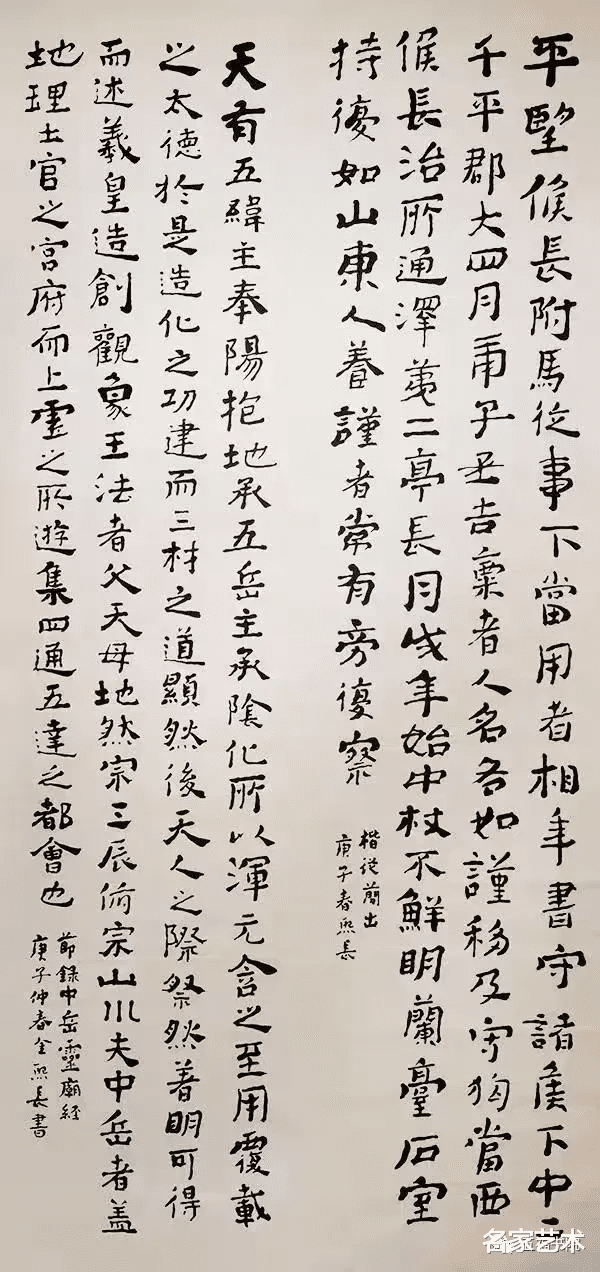 平望候長附馬從事下當用者相年書守諸侯下中二
千平郡大四月甫子丑吉稟者人名各如謹移及守狗當西
候長治所通澤第二亭長月戌年始中杖不鮮明蘭臺石室
持復如山東人養謹者常有旁復察
楷從簡出
庚子春熙長
天有五緯主奉陽抱地承五岳主承陰化所以渾元含之至用覆載
之太德於是造化之功建而三材之道顯然後天人之際祭然著明可得
而述羲皇造創觀象王法者父天母地然宗三辰脩宗山川夫中岳者盖
地理土官之宮府而上靈之所遊集四通五達之都會也
節錄中岳靈廟經
庚子仲春金熙長書
名家艺术